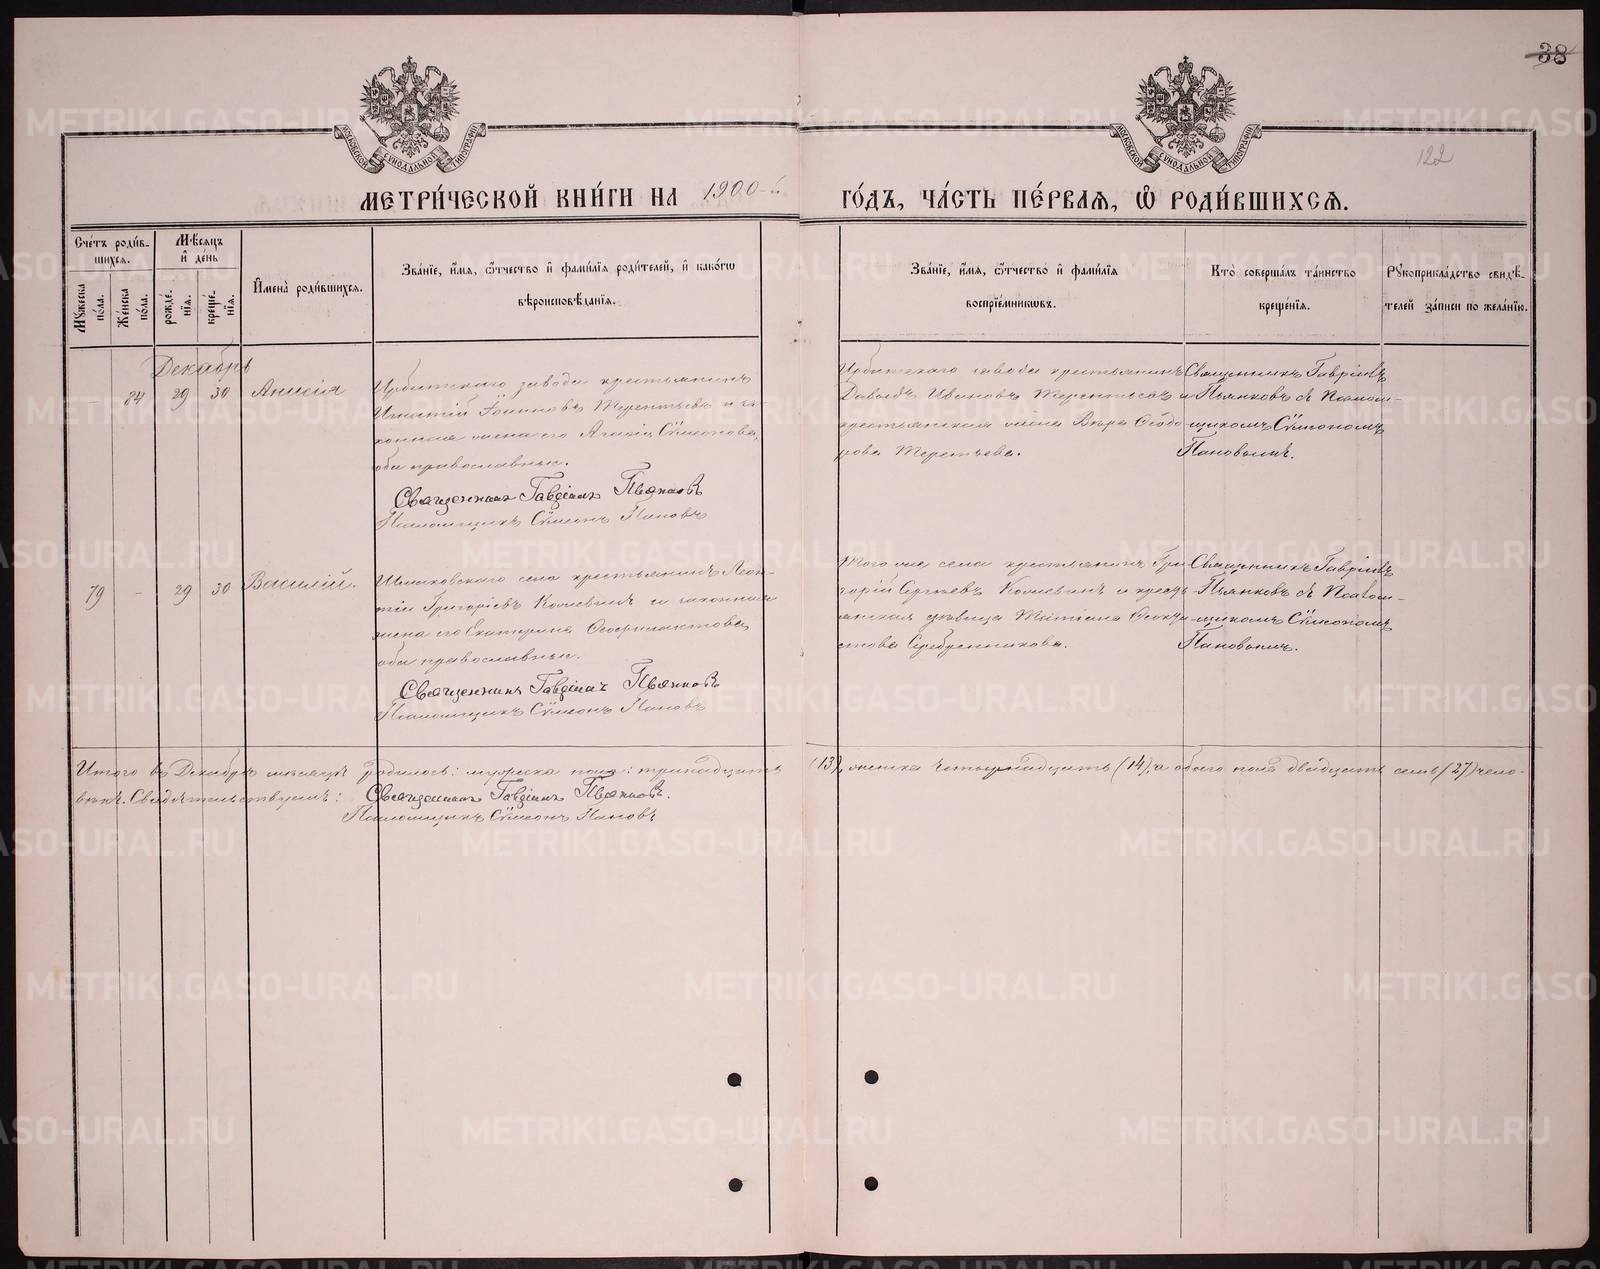 38
122
МОСКОВСКОЙ СѴНОДАЛЬНОЙ ТИПОГРАФІИ
МОСКОВСКОЙ СѴНОДАЛЬНОЙ ТИПОГРАФІИ
МЕТРИ́ЧЕСКОЙ КНИ́ГИ НА 1900-й ГО́ДЪ, ЧА́СТЬ ПЕ́РВАѦ, Ѡ҆ РОДИ́ВШИХСѦ.
Сче́тъ роди́в-
шихсѧ.
Мꙋ́жеска по́ла.
Же́нска по́ла.
Мѣ́сѧцъ
и҆ де́нь
рожде́-
нїѧ.
креще́-
нїѧ.
И҆мена̀ роди́вшихсѧ.
Зва́нїе, и҆́мѧ, ѻ҆́тчество и҆ фами́лїѧ роди́телей, и҆ како́гѡ
вѣроисповѣ́данїѧ.
Зва́нїе, и҆́мѧ, ѻ҆́тчество и҆ фами́лїѧ
воспрїе́мникѡвъ.
Кто̀ соверша́лъ та́инство
креще́нїѧ.
Рꙋкоприкла́дство свидѣ́-
телей за́писи по жела́нїю.
Декабрь
- 84 29 30 Анисія
Ирбитскаго завода крестьянинъ
Игнатій Іоанновъ Терентьевъ и за-
конная жена его Агафія Сѵмеонова,
оба православные.
Священникъ Гавріилъ Пьянковъ
Псаломщикъ Сѵмеонъ Пановъ
Ирбитскаго завода крестьянинъ
Давыдъ Ивановъ Терентьевъ и
крестьянская жена Вѣра Ѳеодо-
рова Терентьева.
Священникъ Гавріилъ
Пьянковъ съ Псалом-
щикомъ Сѵмеономъ
Пановымъ.
79 - 29 30 Василій.
села крестьянинъ Леон-
тій Григоріевъ и законная
жена его Екатерина Ѳеофилактова,
оба православные.
Священникъ Гавріилъ Пьянковъ
Псаломщикъ Сѵмеонъ Пановъ
Того же села крестьянинъ Гри-
горій Сергѣевъ и кресть-
янская дѣвица Татіана
Серебренникова.
Священникъ Гавріилъ
Пьянковъ съ Псалом-
щикомъ Сѵмеономъ
Пановымъ.
Итого въ Декабрѣ мѣсяцѣ родилось: мужеска пола: тринадцать (13), женска четырнадцать (14), а обоего пола двадцать семь (27) чело-
вѣкъ. Свидѣтельствуемъ: Священникъ Гавріилъ Пьянковъ.
Псаломщикъ Сѵмеонъ Пановъ
METRIKI.GASO-URAL.RU